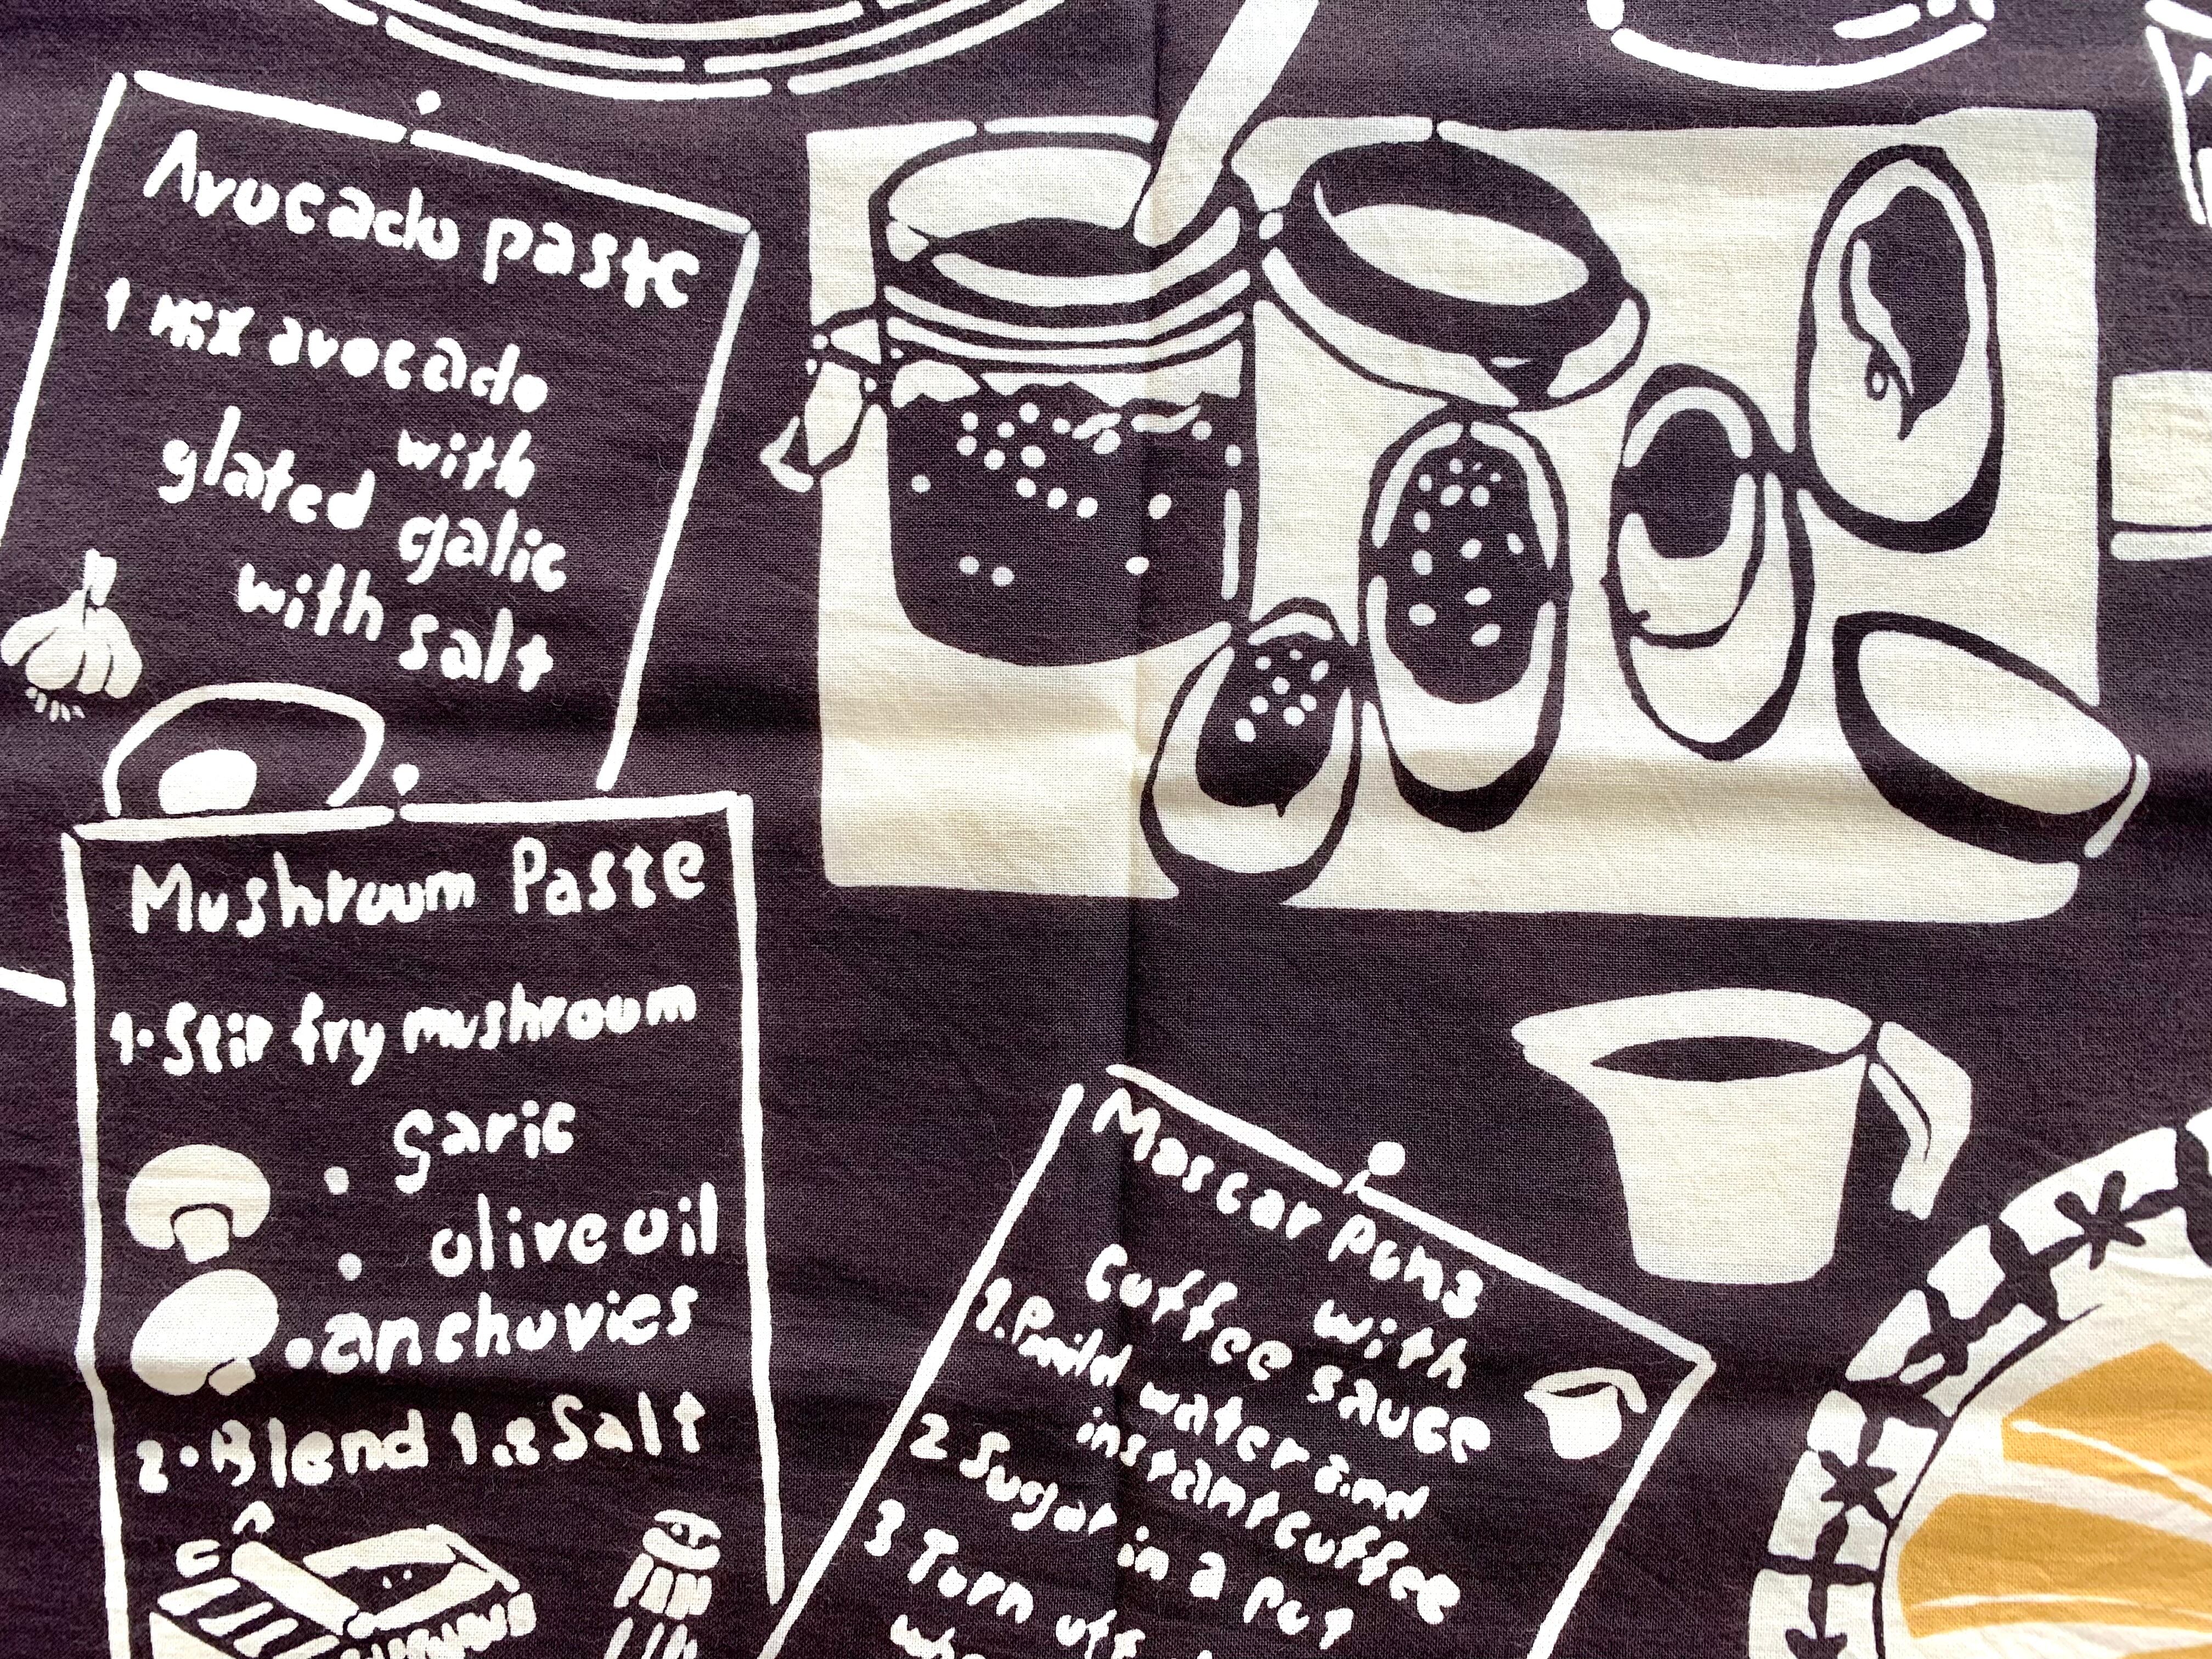 Avocado paste
1 mix avocado
with
glated galic
with salt
Mushroom Paste
1. Stir fry mushroom
garic
• olive oil
• anchovies
2. Blend 1. & Salt
Mascar pone
with
Coffee sauce
water and
instant coffee
2 Sugar in a pot
3 Turn off